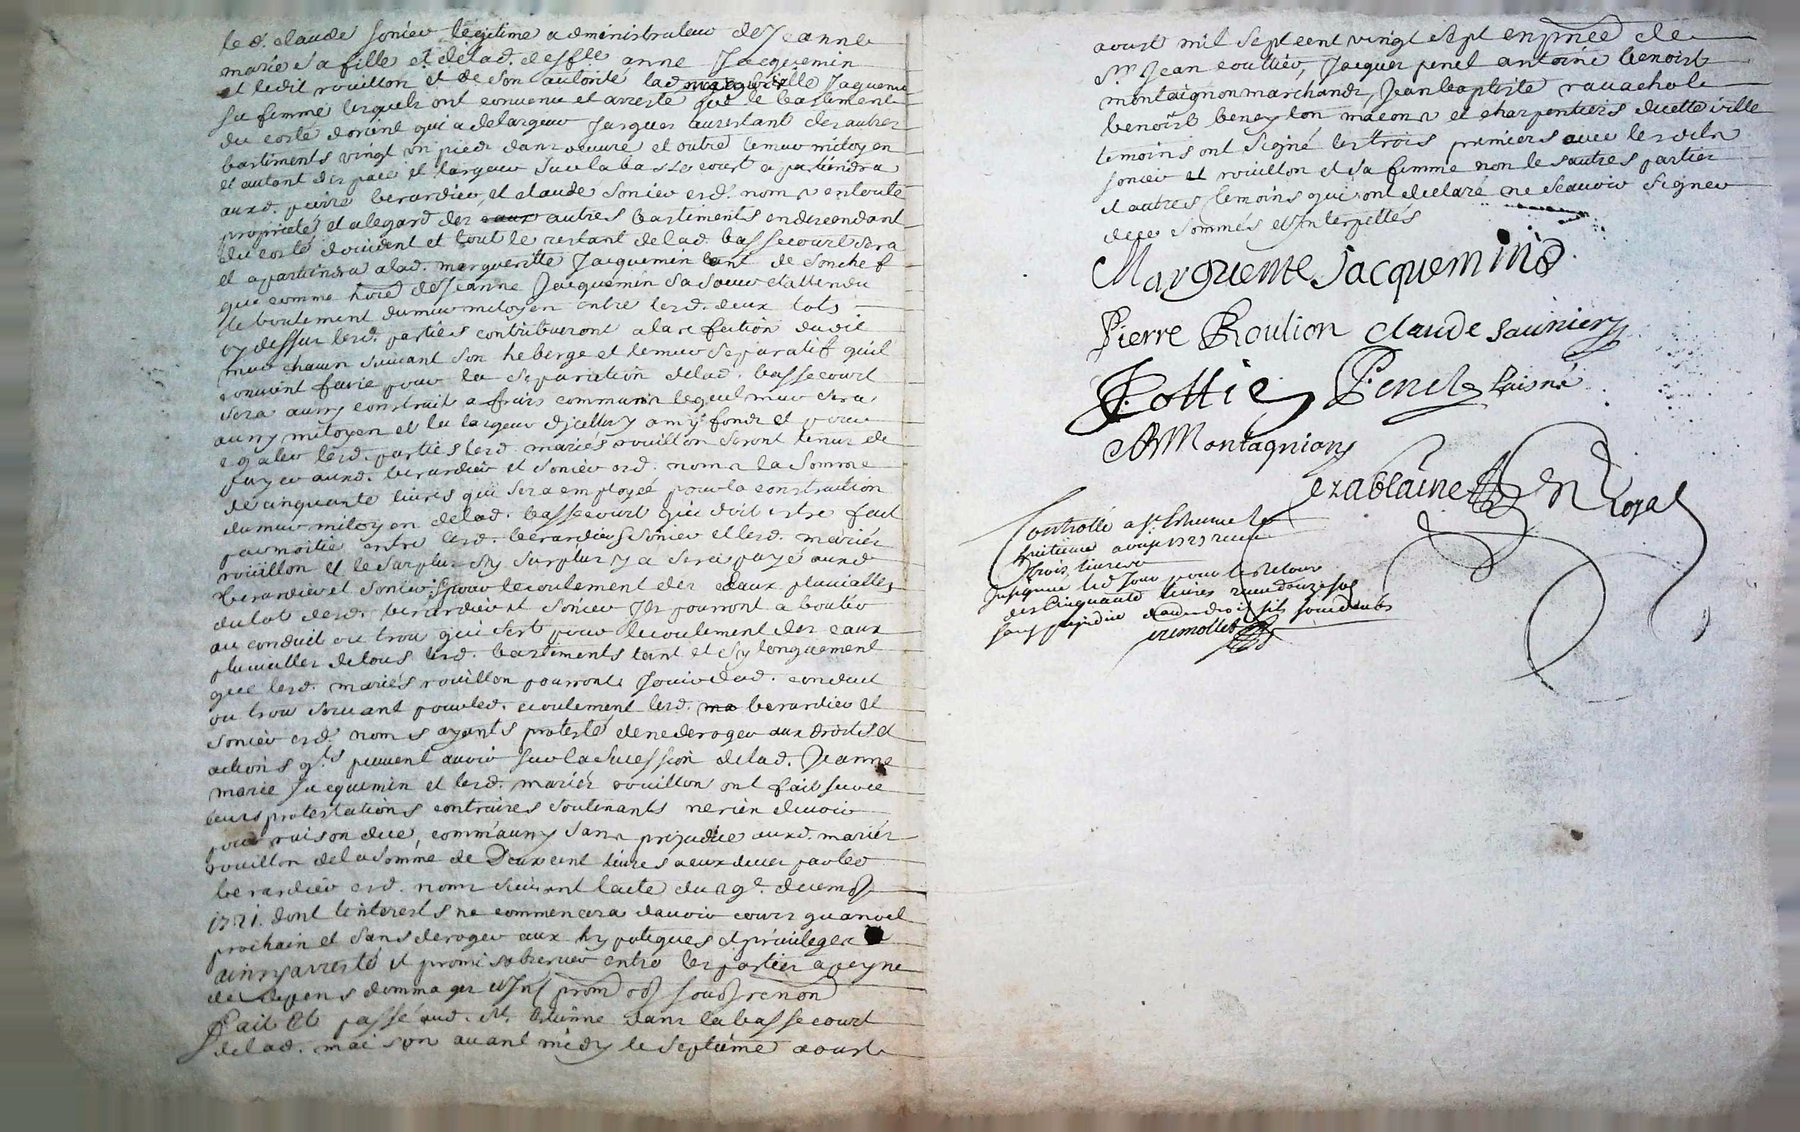 led. claude soniev legitime administrateur de Jeanne
marie sa fille et delad. deffte anne Jacquemin
et ledit rouillon et de son autorité lad marguerite Jaquemin
sa femme lesquels ont convenu et arresté que le bastiment
du costé dorient qui a de largeur jusques au restant des autres
bastiments vingt un pied dans oeuvre et outre le mur mitoyen
et autant despace et largeur sur la basse court apartiendra
auxd. pierre berardiev, et claude soniev esd. noms en toute
proprieté et a legard des autres bastiments en descendant
du costé doccident et tout le restant delad. basse court sera
et apartiendra alad. margueritte Jacquemin tant de son chef
que comme hoird de Jeanne Jacquemin sa soeur et attendu
le boutement du mur mitoyen entre lesd. deux lots
cy dessus lesd. parties contribueront a la refection dudit
mur chacun suivant son heberge et le mur separatif quil
convient faire pour la separation delad. basse court
sera aussy construit a frais communs lequel mur sera
aussy mitoyen et la largeur dicelluy a my fonds et pour
egaler lesd. parties lesd. mariés rouillon seront tenus de
payer auxd. berardiev et soniev esd. noms la somme
de cinquante livres qui sera employée pour la construction
du mur mitoyen delad. basse court qui doit estre fait
par moitié entre lesd. berardiev soniev et lesd. mariés
rouillon et le surplus sy surplus y a sera payé auxd
berardiev et soniev: et pour lecoulement des eaux pluvialles
du lot desd. berardiev et soniev ils pourront aboutir
au conduit ou trou qui sert pour lecoulement des eaux
pluvialles de tous lesd. bastiments tant et sy longuement
que lesd. mariés rouillon pourront jouir dud. conduit
ou trou servant pour led. ecoulement lesd. berardiev et
soniev esd. noms ayants protesté de ne deroger aux droits et
actions qls peuvent avoir sur la sucession delad. Jeanne
marie Jacquemin et lesd. mariés rouillon ont fait
leurs protestations contraires soutenants ne rien devoir
pour raison de ce, comm'aussy sans prejudice auxd. mariés
rouillon de la somme de Deux cent livres a eux deues par led
berardiev esd. noms suivant lacte du
1721. dont linterest ne commencera davoir cours qua noel
prochain et sans deroger aux hypoteques et privileges
ainsy arresté et promis observer entre les parties a peyne
de depens dommages et Ins prom
Fait Et passé aud. St. Etienne dans la basse court
delad. maison avant midy le septieme aoust
aoust mil sept cent vingt sept en prnce de
Srs Jean cottiev, Jacques penel antoine benoist
montaignon marchands, Jean baptiste ravachol
benoist beneyton macons et charpentiers de cette ville
temoins ont signé les trois premiers avec lesdits
soniev et rouillon et sa femme non les autres parties
et autres temoins qui ont declaré ne scavoir signer
de ce sommés et Interpellés
Marguerite Jacquemind
Pierre Roulion claude saunier
J. Cottier P. Penel Laisné
ABMontagnion
ezablaine Royal
Controllé a St. Estienne le
huitieme aoust 1727 receu
trois livres
des Cinquante livres receu douze sols